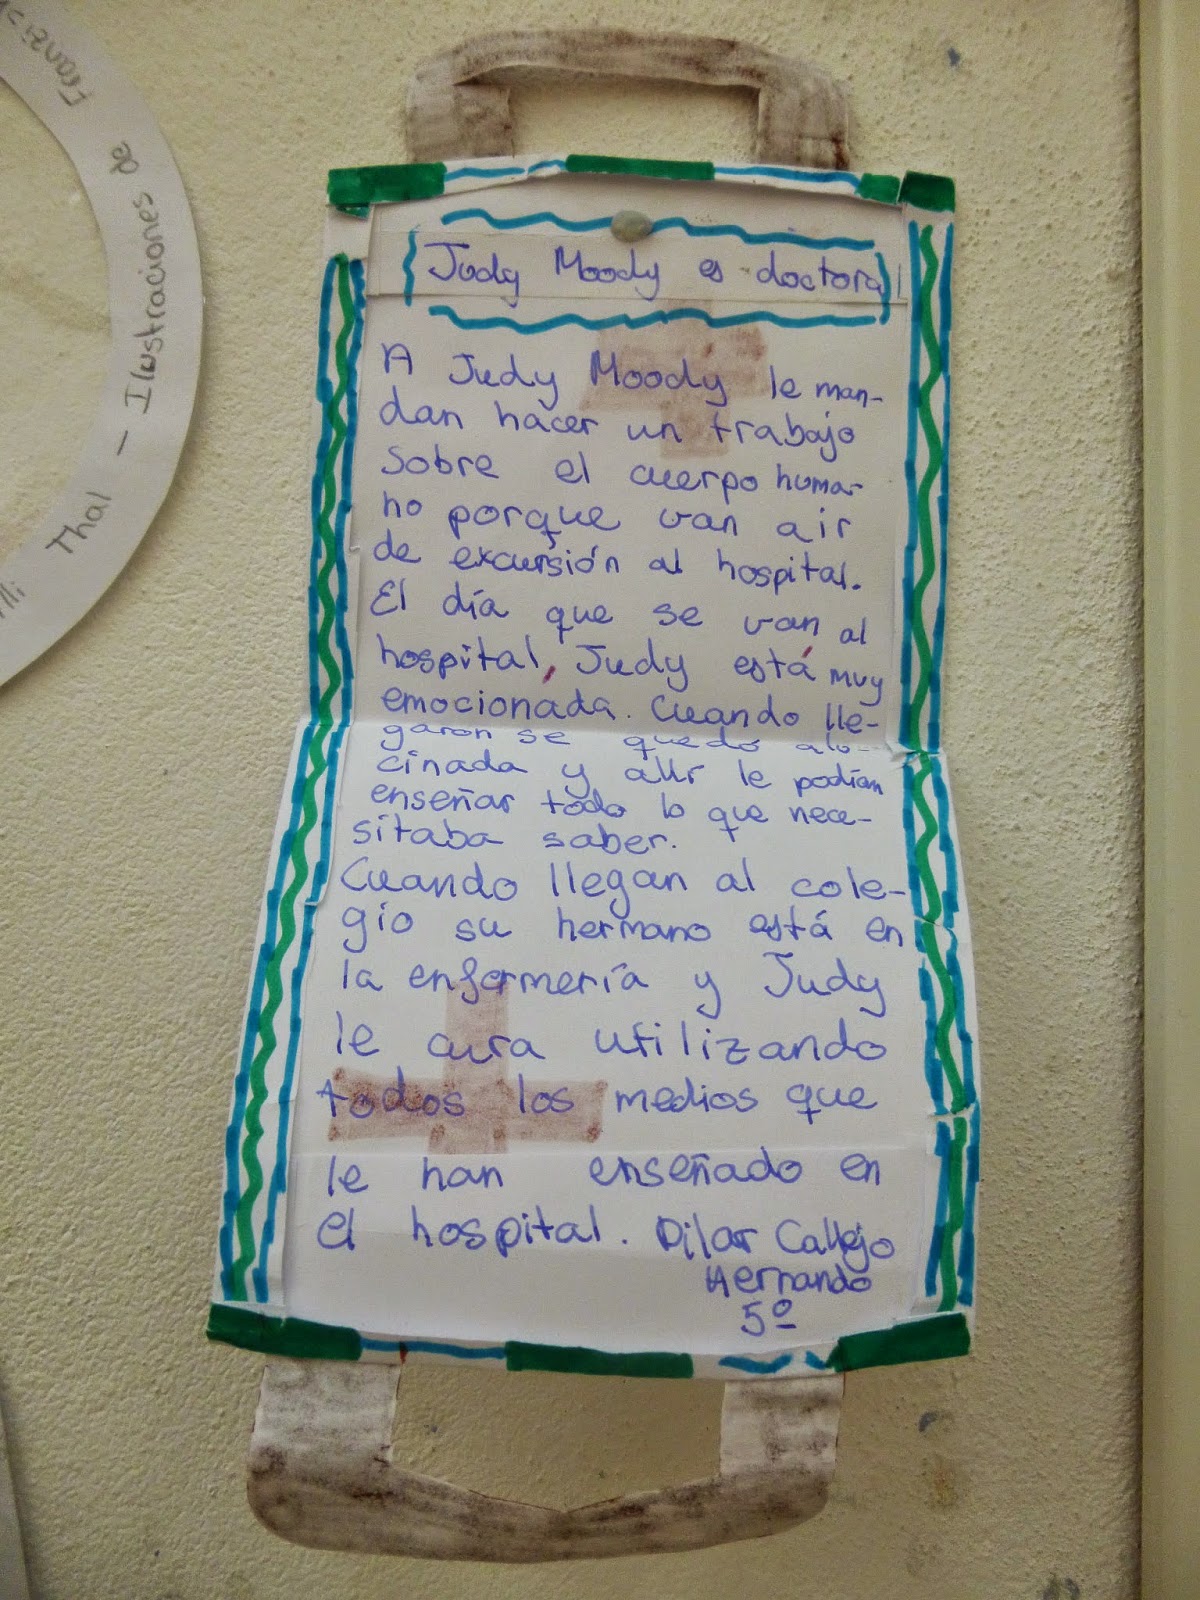 Judy Moody es doctora
A Judy Moody le man-
dan hacer un trabajo
sobre el cuerpo huma-
no porque van air
de excursión al hospital.
El día que se van al
hospital, Judy está muy
emocionada. Cuando lle-
garon se quedó alu-
cinada y allí le podían
enseñar todo lo que nece-
sitaba saber.
Cuando llegan al cole-
gio su hermano está en
la enfermería y Judy
le cura utilizando
todos los medios que
le han enseñado en
el hospital. Pilar Callejo
Hernando
5º
Thal - Ilustraciones de